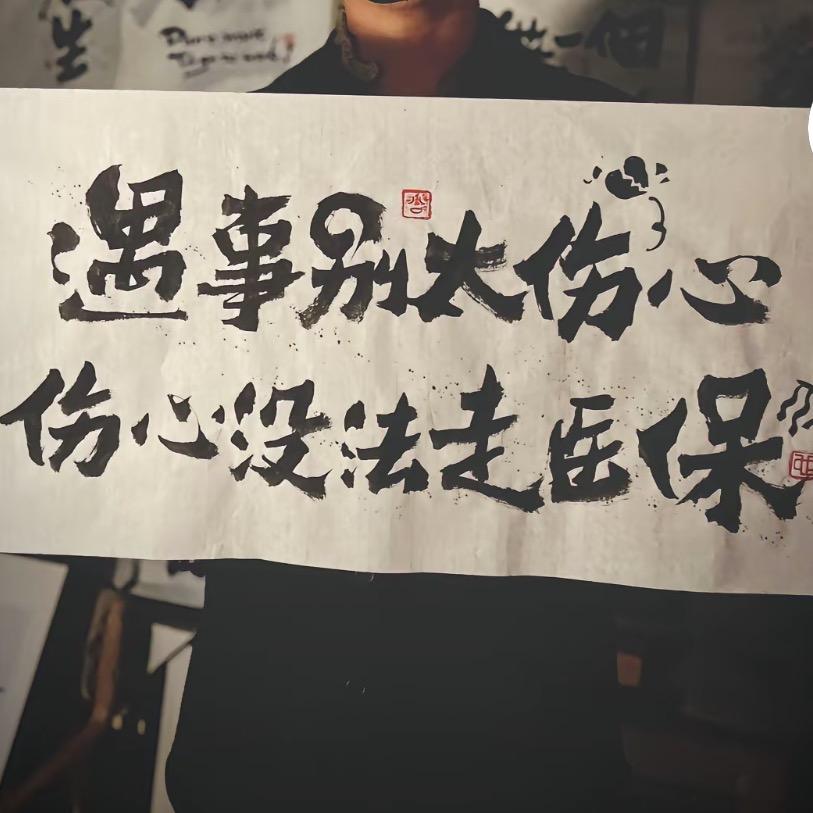 生
一個
遇事别太伤心
伤心没法走医保